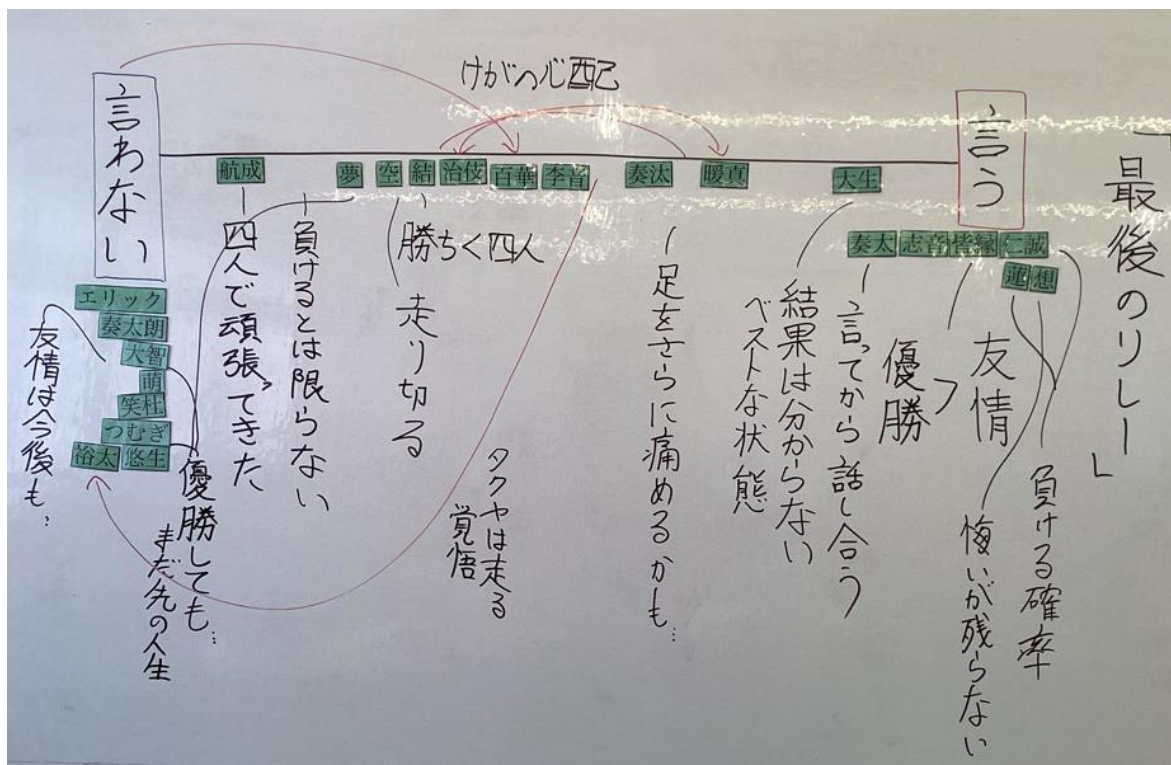 「最後のリレー」
言う
奏太
志音
皆縁
仁誠
蓮
想
負ける確率
悔いが残らない
友情
優勝
言ってから話し合う
大生
結果は分からない
ベストな状態
暖真
奏汰
足をさらに痛めるかも…
けがの心配
李音
百華
治伎
結
空
夢
航成
タクヤは走る
覚悟
勝ちく四人
走り切る
負けるとは限らない
四人で頑張ってきた
言わない
エリック
奏太朗
大智
萌
つむぎ
裕太
悠生
優勝しても…
まだ先の人生
友情は今後も…